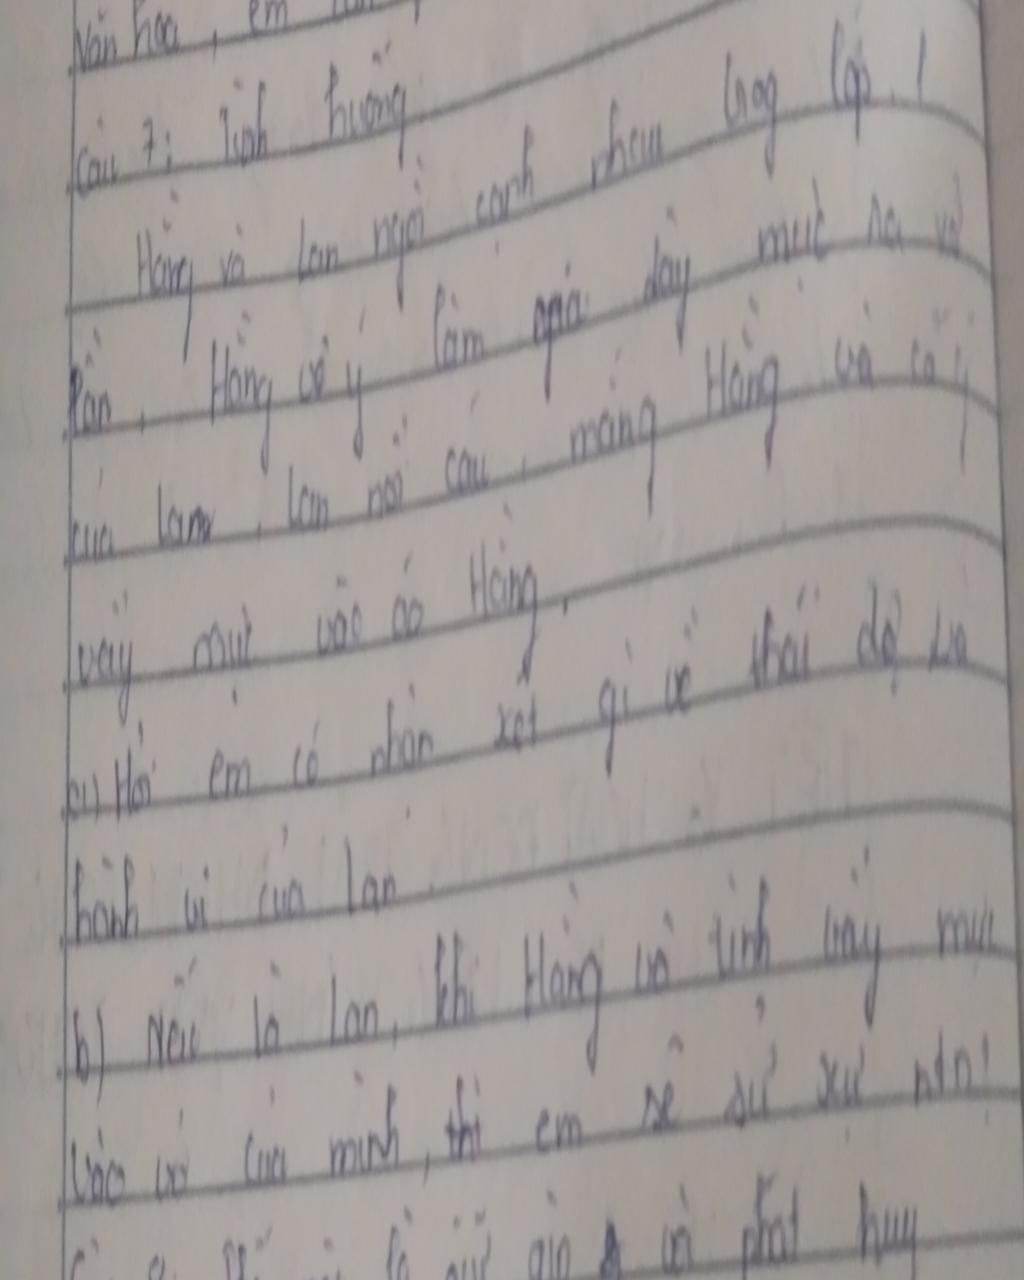 văn hoá, em
Câu 7: Tình huống
Hằng và Lan ngồi cạnh nhau trong lớp. 1
lần, Hằng vô ý làm giây mực ra vở
của Lan, Lan nổi cáu, mắng Hằng và cố ý
vẩy mực vào áo Hằng.
a) Hỏi em có nhận xét gì về thái độ và
hành vi của Lan
b) Nếu là Lan, khi Hằng vô tình vẩy mực
vào vở của mình, thì em sẽ sử xự ntn?
giữ gìn và phát huy